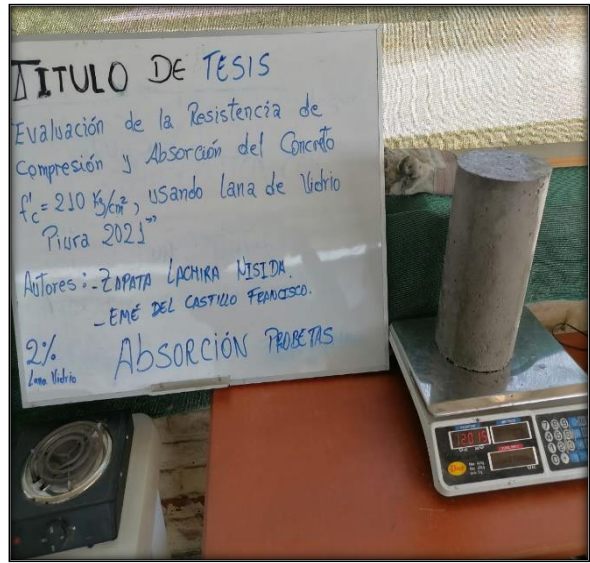 TITULO DE TESIS
"Evaluación de la Resistencia de
Compresión y Absorción del Concreto
f'c = 210 Kg/cm², usando Lana de Vidrio
Piura 2021"
Autores: - ZAPATA LACHIRA NISIDA.
- EMÉ DEL CASTILLO FRANCISCO.
2%
Lana Vidrio
ABSORCIÓN PROBETAS
12.015